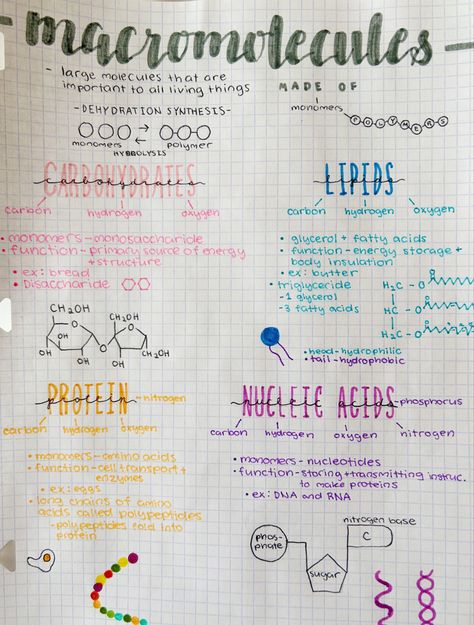 macromolecules
- large molecules that are
important to all living things
- DEHYDRATION SYNTHESIS -
monomers polymer
HYDROLYSIS
MADE OF
monomers
POLYMERS
CARBOHYDRATES
carbohydrates
carbon hydrogen oxygen
• monomers - monosaccharide
• function - primary source of energy
+ structure
• ex: bread
• Disaccharide
CH₂OH CH₂OH
O O
OH O OH
OH OH CH₂OH
LIPIDS
lipids
carbon hydrogen oxygen
• glycerol + fatty acids
• function - energy storage +
body insulation
• ex: butter
• triglyceride
- 1 glycerol
- 3 fatty acids
H₂C - O
HC - O
H₂C - O
• head - hydrophilic
• tail - hydrophobic
PROTEIN
protein
- nitrogen
carbon hydrogen oxygen
• monomers - amino acids
• function - cell transport +
enzymes
• ex: eggs
• long chains of amino
acids called polypeptides
- polypeptides fold into
protein
NUCLEIC ACIDS
nucleic acids
- phosphorus
carbon hydrogen oxygen nitrogen
• monomers - nucleotides
• function - storing + transmitting instruc.
to make proteins
• ex: DNA and RNA
phos-
phate
sugar
nitrogen base
C